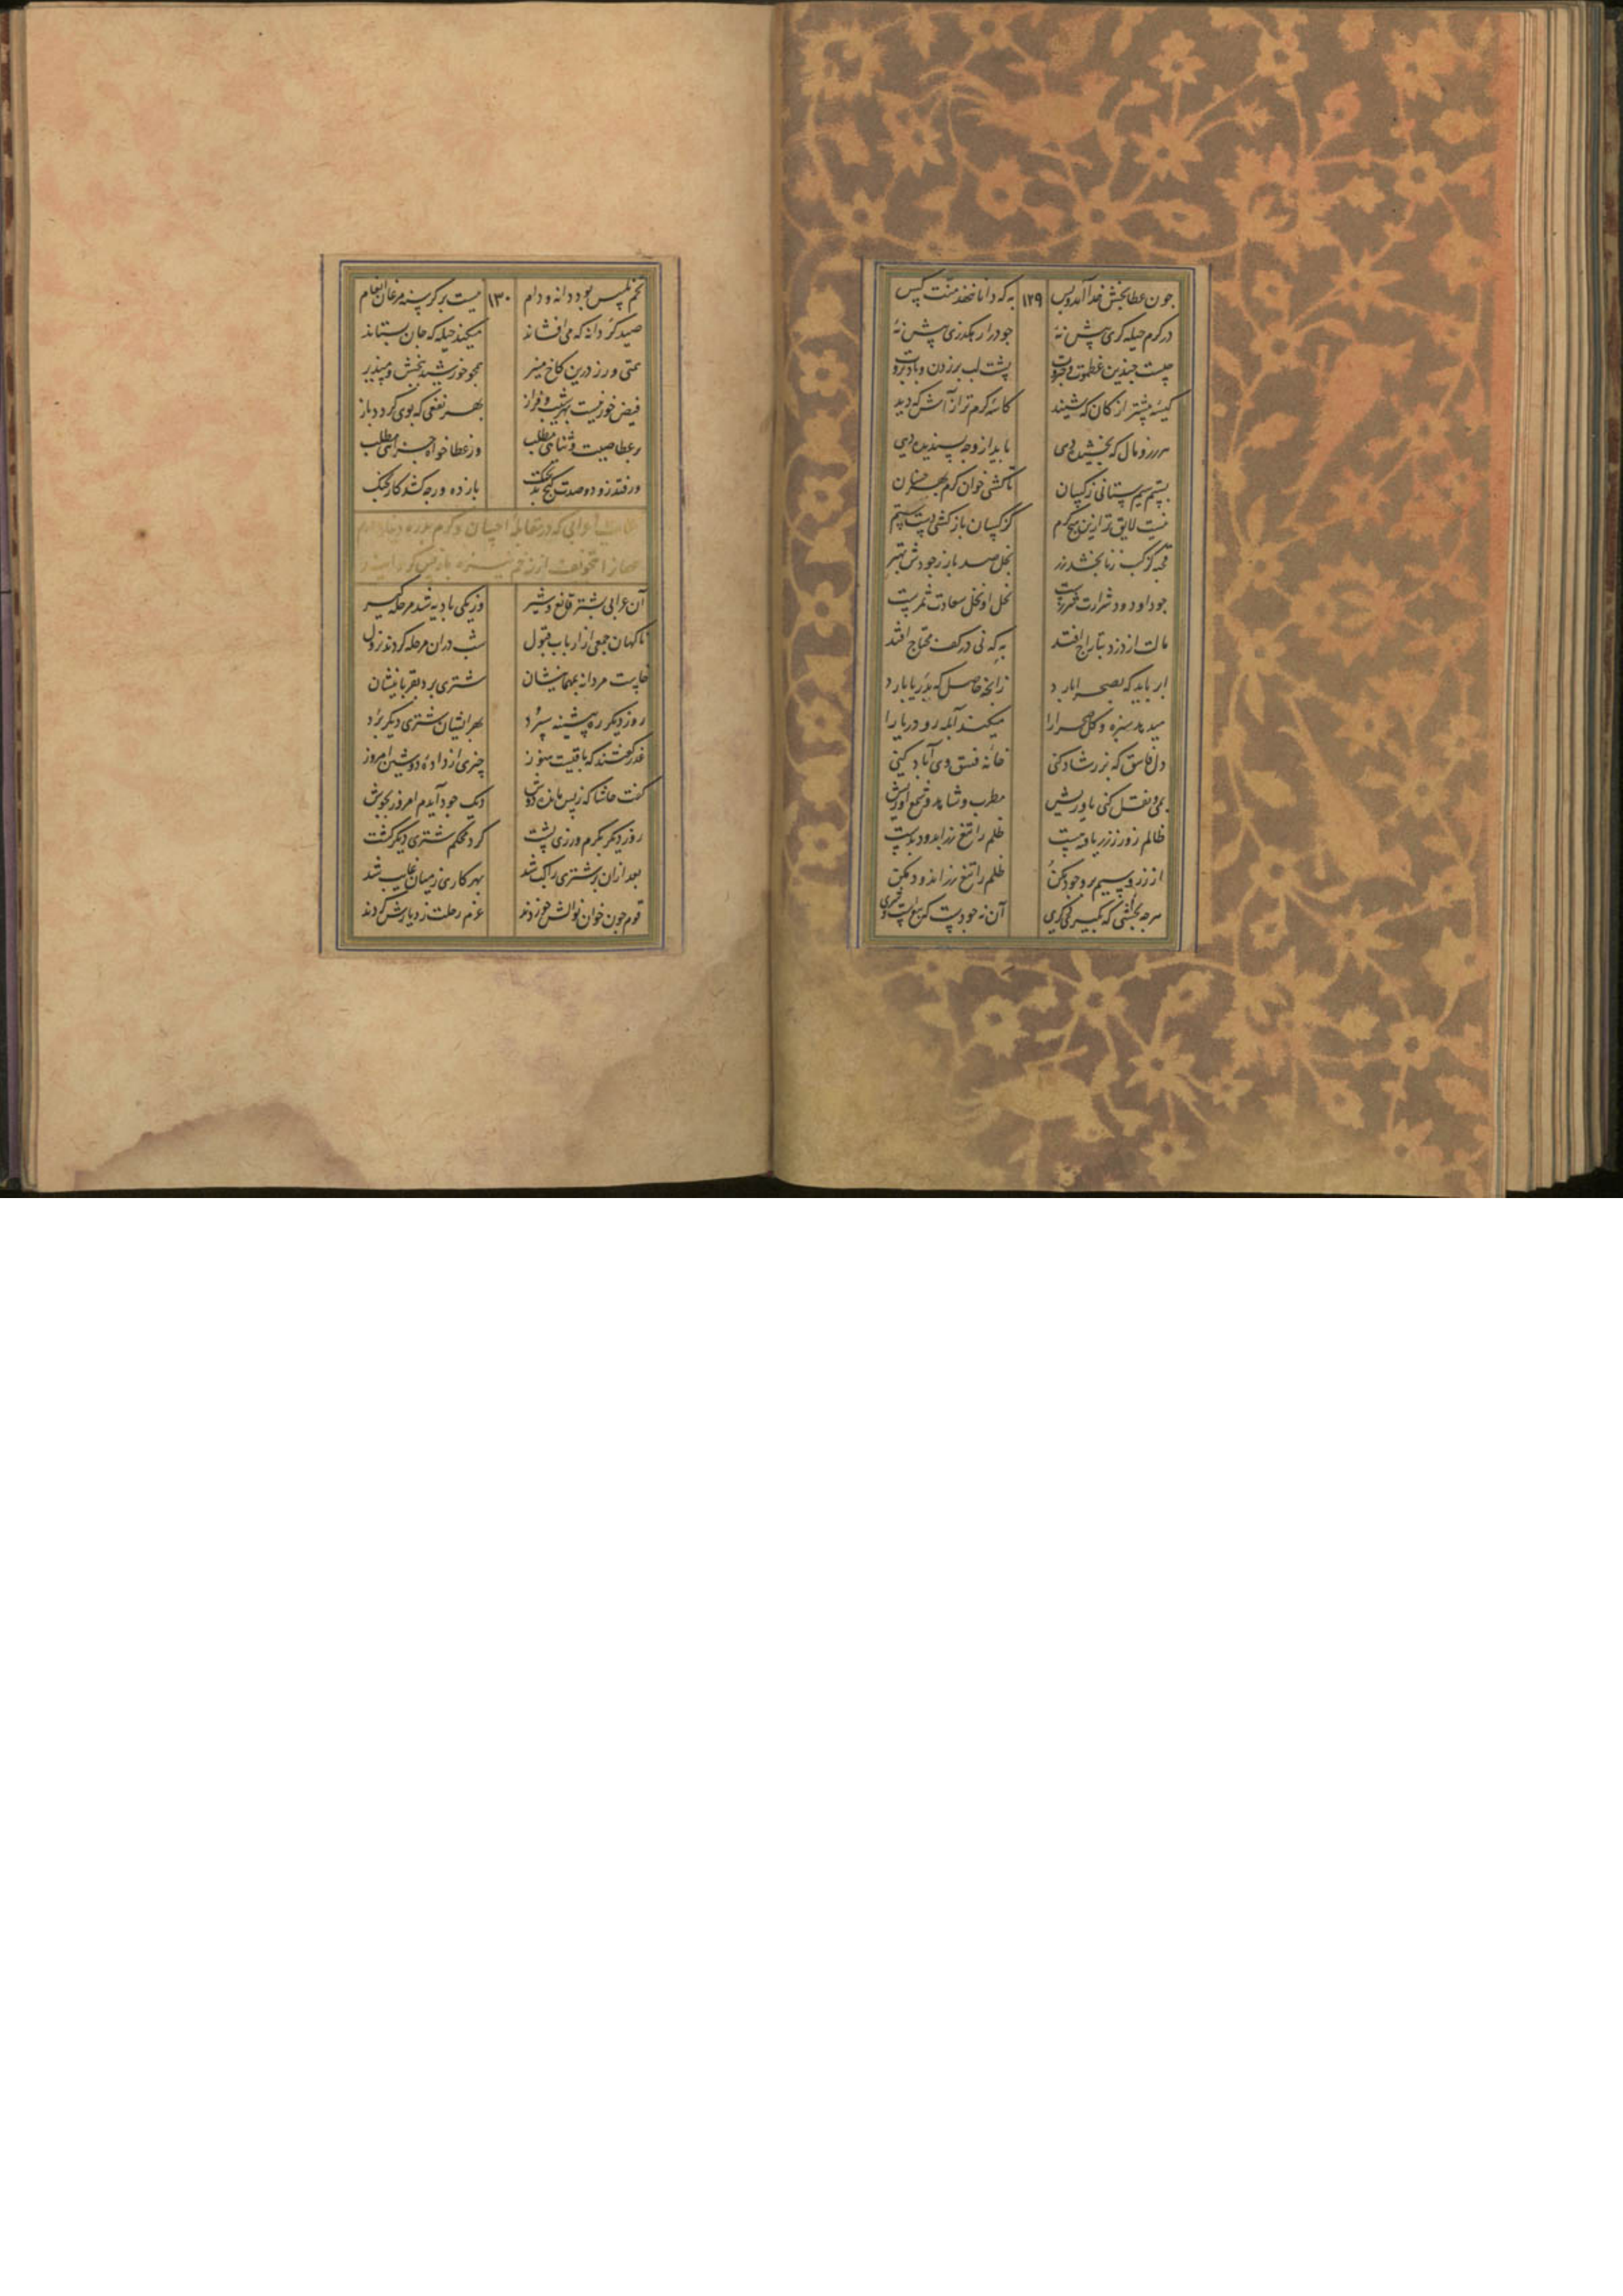 چون عطابخش خدا آمد و بس ۱۲۹ به که دانا ننهد منت کس
در کرم حیله گری پیش نهٔ جود را رهگذری بیش نهٔ
چیست چندین عظموت و جبروت پشت لب بر زدن و باد بروت
کیسه پیشتر از کان که شنید کاسه گرم تر از آش که دید
هر زر و مال که بخشیده دهی باید از وجه پسندیده دهی
بستم سیم ستانی ز کسان تا کشی خوان کرم بهر خسان
نیست لایق تر ازین هیچ کرم کز کسان بازکشی دست ستم
قحبه کز کسب زنا بخشد زر بخل صد بار ز جودش بهتر
جود او دود شرارت بخل او نخل سعادت ثمرست
مالت از دزد بتاراج افتد به که نی در کف محتاج افتد
ابر باید که بصحرا بارد زانچه حاصل که بدریا بارد
میدهد سبزه و گل صحرا را میکند آبله رو دریا را
دل فاسق که بزر شاد کنی خانهٔ فسق وی آباد کنی
می و نقل کنی یاوریش مطرب و شاهد و شمع آوریش
ظالم زور ز زر یافته چست ظلم را تیغ زراندود بدست
از زر و سیم برو جود مکن ظلم را تیغ زراندود مکن
هر چه بخشی که بگیری آن نه جودست که
۱۳۰ نیست بر گرسنه مرغان انعام
صید گر دانه که می افشاند میکند حیله که جان بستاند
درین کاخ همچو خورشید ببخش و مپذیر
فیض خور نیست بهر شیب و فراز بهر نفعی که بوی گردد باز
بر عطا صیت و ثنا می مطلب وز عطا خواه جزا می مطلب
ور فتد زود و صدت گنج بچنگ باز ده ورچه کشد کار بجنگ
اعرابی که در مقابلهٔ احسان و کرم بدره
آن عرابی بشتر قانع و شیر در یکی بادیه شد مرحله گیر
ناگهان جمعی از ارباب قبول شب در آن مرحله کردند نزول
خاست مردانه بمهمانیشان شتری برد بقربانیشان
روز دیگر ره پیشینه سپرد بهر ایشان شتری دیگر برد
عذر گفتند که باقیست هنوز چیزی از دادهٔ دوشین امروز
گفت حاشا که ز پس ماندهٔ دوش دیگ جود آیدم امروز بجوش
روز دیگر بکرم ورزی پشت کرد محکم شتری دیگر کشت
بعد از آن بر شتری راکب شد بهر کاری ز میان غایب شد
قوم چون خوان نوالش خوردند عزم رحلت ز دیارش کردند